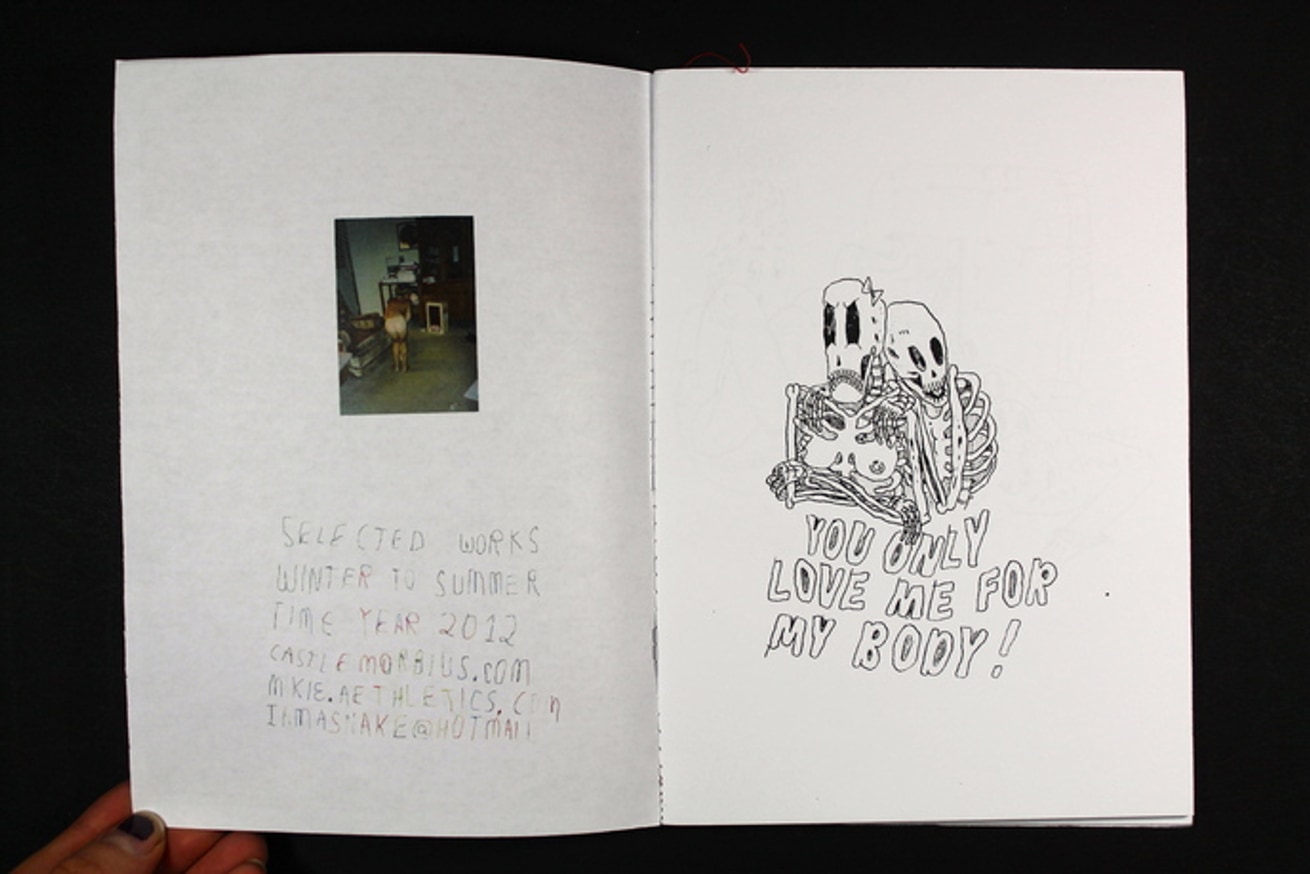 SELECTED WORKS
WINTER TO SUMMER
TIME YEAR 2012
CASTLEMORBIUS.COM
MKIE.AETHLETICS.COM
IAMASNAKE@HOTMAIL
YOU ONLY
LOVE ME FOR
MY BODY!